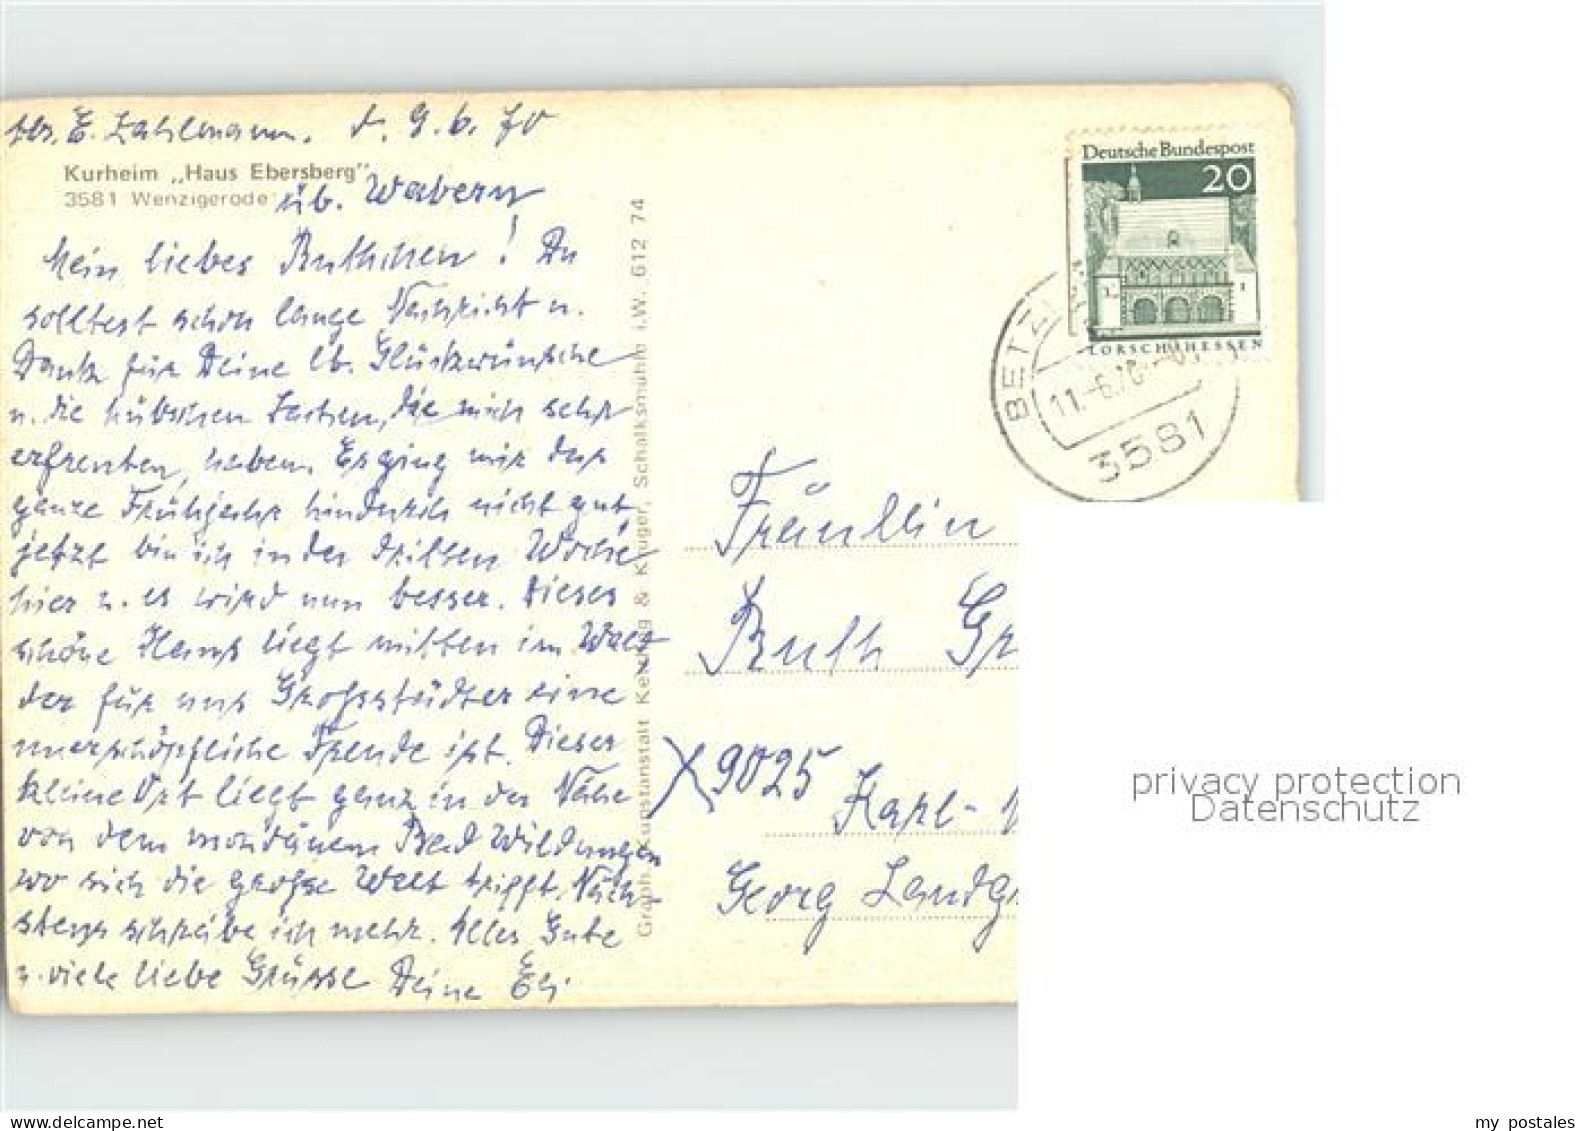 Abs. E. Zahlmann. d. 9.6.70
Kurheim „Haus Ebersberg"
3581 Wenzigerode
üb. Wabern
Mein liebes Ruthchen! Du
solltest schon lange Nachricht u.
Dank für Deine lb. Glückwünsche
u. die hübschen Karten, die mich sehr
erfreuten, haben. Es ging mir das
ganze Frühjahr hindurch nicht gut,
jetzt bin ich in der dritten Woche
hier u. es wird nun besser. Dieses
schöne Haus liegt mitten im Wald
der für uns Grossstädter eine
unerschöpfliche Freude ist. Dieser
kleine Ort liegt ganz in der Nähe
von dem mondänen Bad Wildungen
wo sich die grosse Welt trifft. Näch-
stens schreibe ich mehr. Alles Gute
u. viele liebe Grüsse Deine Eli
Graph. Kunstanstalt Kersting & Krüger, Schalksmühle i.W. 612 74
Deutsche Bundespost
20
LORSCH/HESSEN
11.-6.70
3581
Fräulein
Ruth Gr
X 9025 Karl-
Georg Landg
privacy protection
Datenschutz
my postales